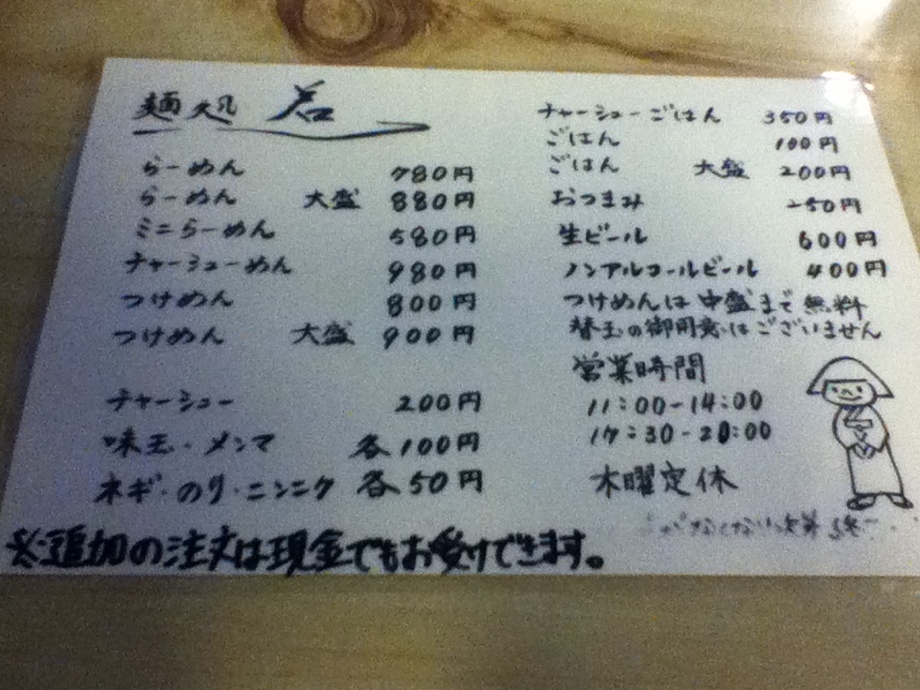 麺処 君
らーめん 780円
らーめん 大盛 880円
ミニらーめん 580円
チャーシューめん 980円
つけめん 800円
つけめん 大盛 900円
チャーシュー 200円
味玉・メンマ 各100円
ネギ・のり・ニンニク 各50円
チャーシューごはん 350円
ごはん 100円
ごはん 大盛 200円
おつまみ 250円
生ビール 600円
ノンアルコールビール 400円
つけめんは中盛まで無料
替玉の御用意はございません
営業時間
11:00-14:00
17:30-20:00
木曜定休
なくない次第
※追加の注文は現金でもお受けできます。